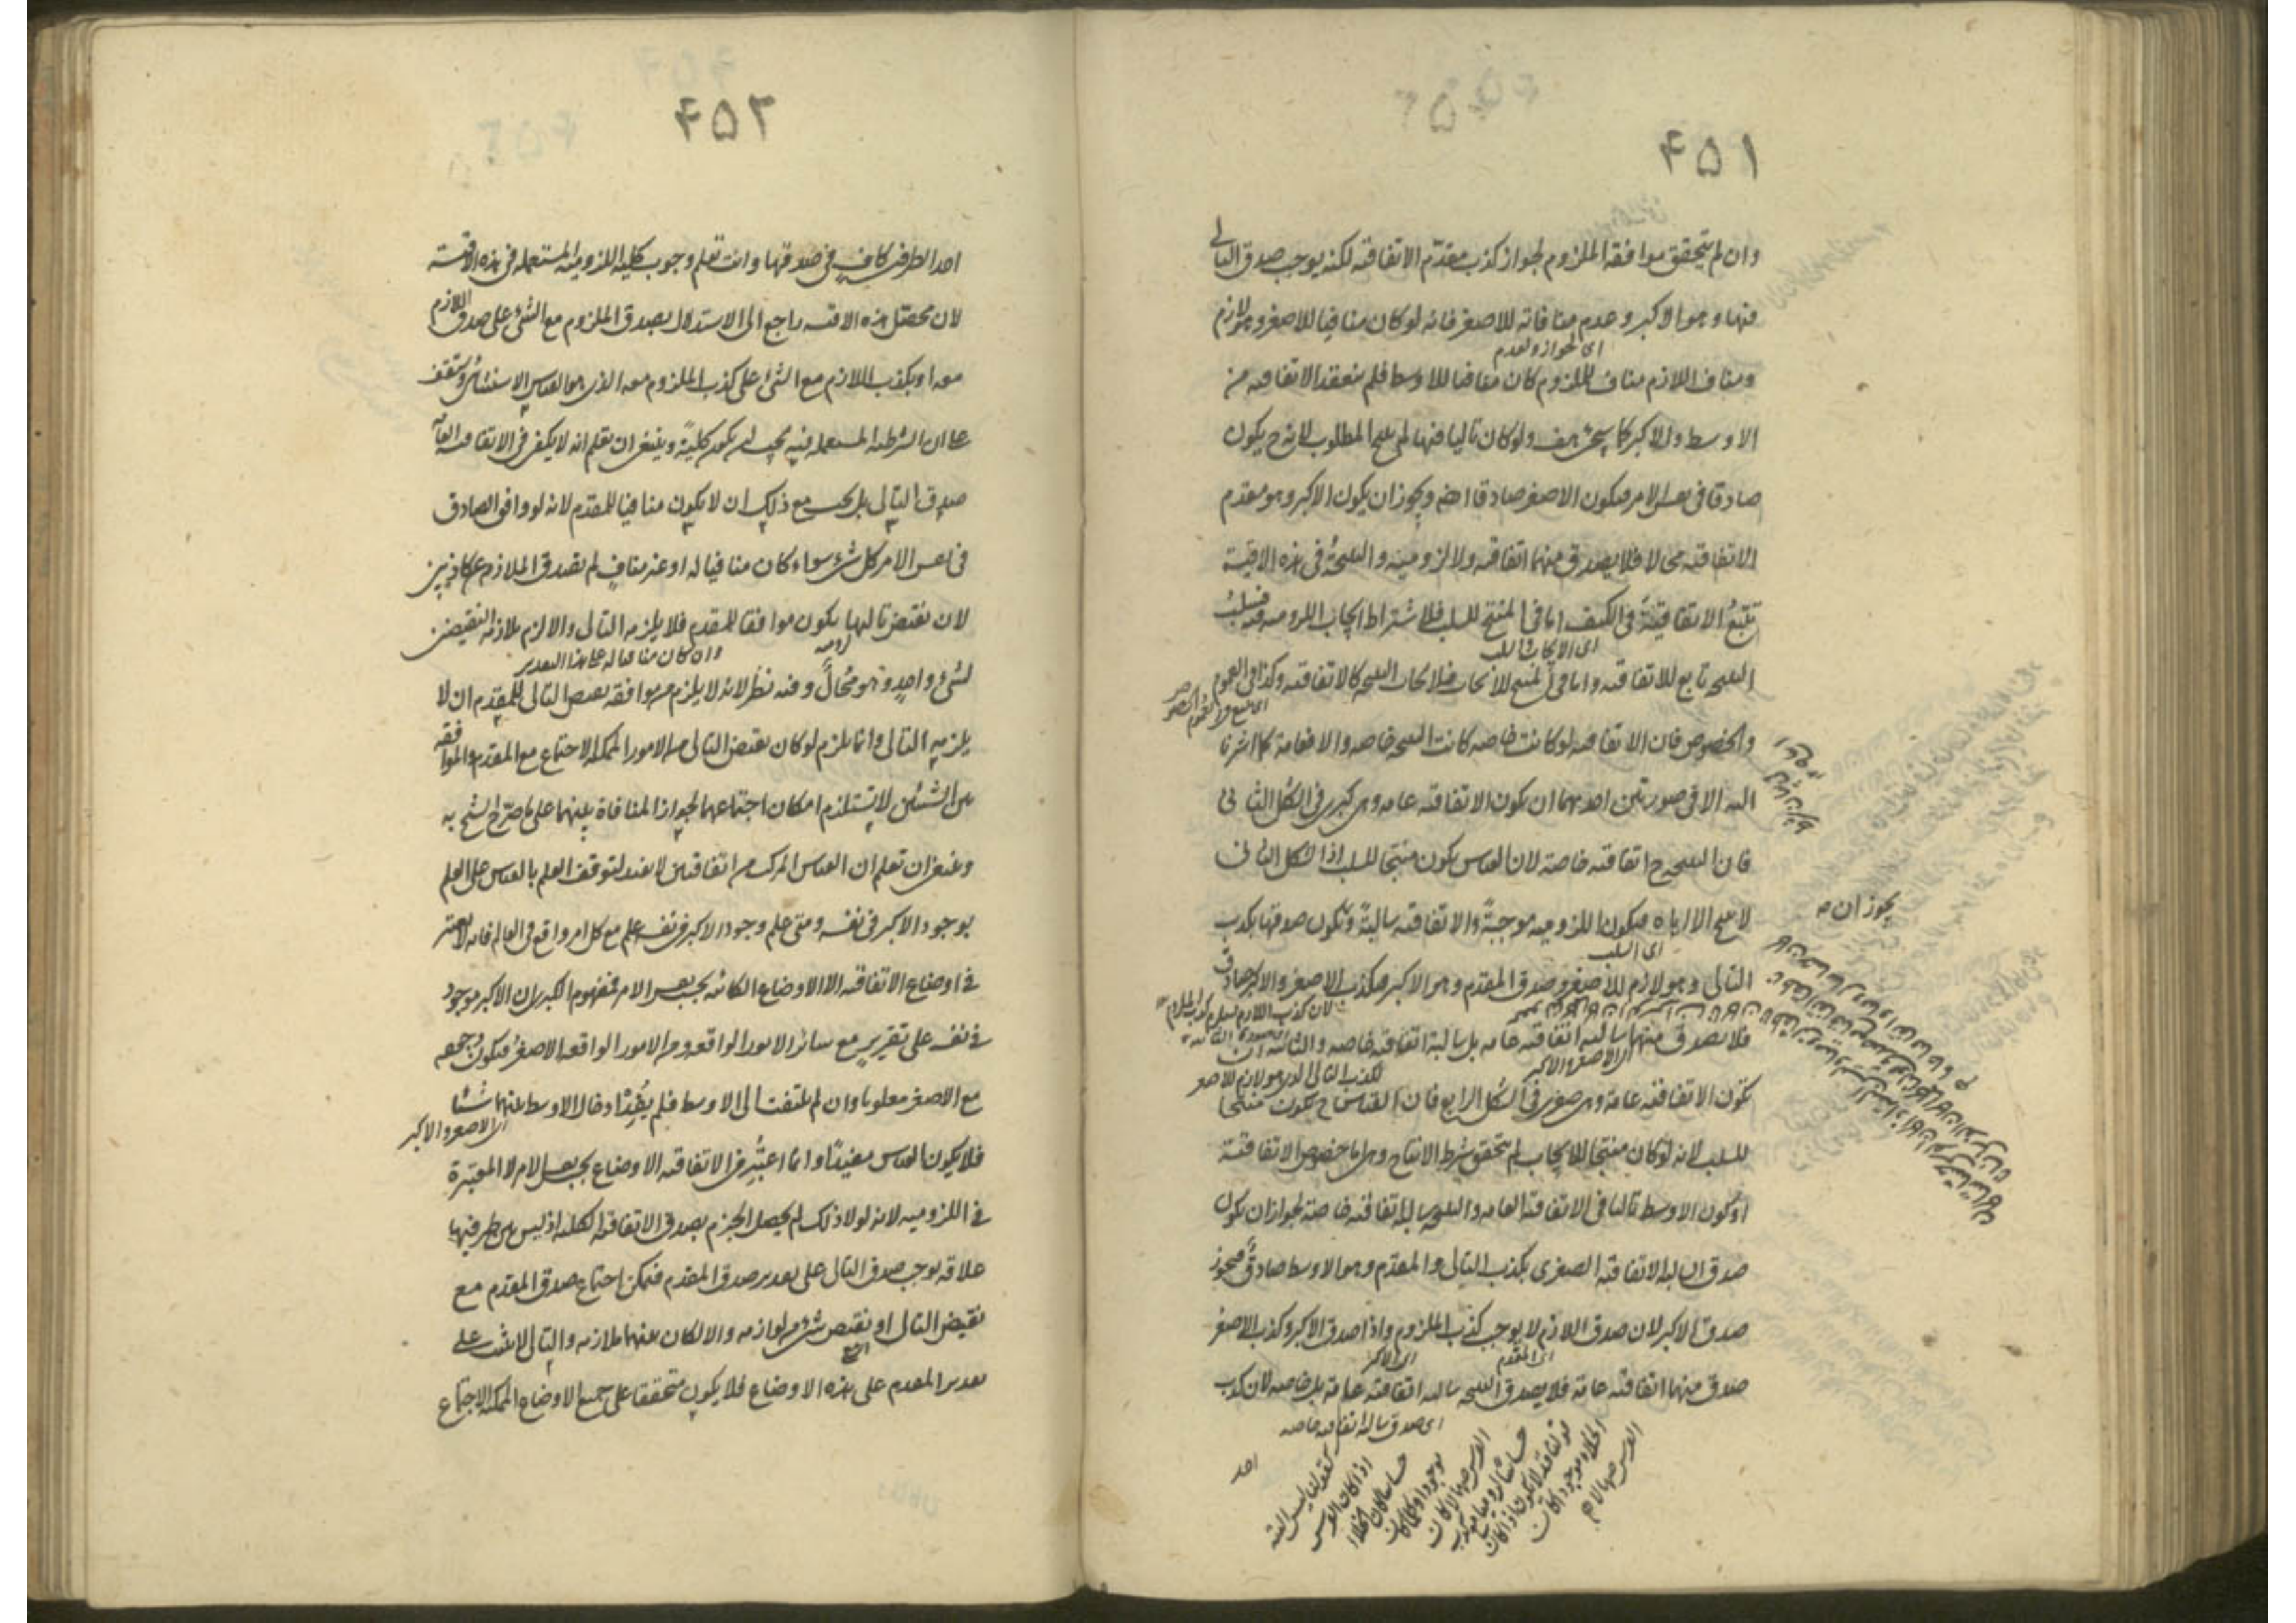 ۴۵۱
وان لم يتحقق موافقة الملزوم لجواز كذب مقدم الاتفاقية لكنه يوجب صدق التالى
فيها وهو الاكبر وعدم منافاته للاصغر فانه لو كان منافيا للاصغر وهو لازم
اى لجواز ولعدم
ومناف اللازم مناف للملزوم كان منافيا للاوسط فلم ينعقد الاتفاقيه من
الاوسط والاكبر كما سيجئ هف ولو كان تاليا فيها لم ينتج المطلوب لانه ح يكون
صادقا فى نفس الامر فيكون الاصغر صادقا ايضا ويجوز ان يكون الاكبر وهو مقدم
الاتفاقيه محالا فلا يصدق منهما اتفاقيه ولا لزوميه والنتيجة فى هذه الاقيسة
تتبع الاتفاقيّة فى الكيف اما فى المنتج للسلب فلاشتراط ايجاب اللزوميه فيه فسلب
اى الايجاب والسلب
النتيجه تابع للاتفاقيه واما فى المنتج للايجاب فلايجاب النتيجه كالاتفاقيه وكذا فى العموم
والخصوص فان الاتفاقيه لو كانت خاصه كانت النتيجه خاصه والا فعامة كما اشرنا
اليه الا فى صورتين احديهما ان يكون الاتفاقيه عامه وهى كبرى فى الشكل الثانى
فان النتيجه ح اتفاقيه خاصة لان القياس يكون منتجا للسلب اذ الشكل الثانى
يجوز ان
لا ينتج الا اياه فيكون اللزوميه موجبةً والاتفاقيه سالبةً ويكون صدقها بكذب
اى السلب
التالى وهو لازم للاصغر وصدق المقدم وهو الاكبر فيكذب الاصغر والاكبر صادق
لان كذب اللازم يستلزم كذب الملزوم
فلا يصدق منهما سالبه اتفاقيه عامه بل سالبة اتفاقيه خاصه والثانيه ان
اى الاصغر والاكبر
لكذب التالى الذى هو لازم للاصغر
يكون الاتفاقيه عامة وهى صغرى فى الشكل الرابع فان القياس ح يكون منتجا
للسلب لانه لو كان منتجا للايجاب لم يتحقق شرط الانتاج وهى اما خصوص الاتفاقيّة
او كون الاوسط تاليا فى الاتفاقيه العامه والنتيجه سالبة اتفاقيه خاصة لجواز ان يكون
صدق السالبه الاتفاقيه الصغرى بكذب التالى والمقدم وهو الاوسط صادق فيجوز
صدق الاكبر لان صدق اللازم لا يوجب كذب الملزوم واذا صدق الاكبر وكذب الاصغر
اى المقدم
اى الاكبر
صدق منهما اتفاقيه عامة فلا يصدق النتيجه سالبه اتفاقيه عامة بل خاصه لان كذب
اى صدق سالبة اتفاقيه خاصه
كقولنا ليس البتة
اذا كان الفرس
حساسا كان الخلاء
موجودا وكلما كان
الفرس صهالا كان
حساسا
قولنا قد لا يكون اذا كان
الخلاء موجودا كان
الفرس صهالا
۴۵۲
احد الطرفين كاف فى صدقها وانت تعلم وجوب كلية اللزوميّة المستعمله فى هذه الاقيسة
لان محصّل هذه الاقيسه راجع الى الاستدلال بصدق الملزوم مع الشئ على صدق اللازم
معه او بكذب اللازم مع الشئ على كذب الملزوم معه الذى هو القياس الاستثنائى وستقف
على ان الشرطيه المستعمله فيه يجب ان يكون كليةً وينبغى ان تعلم انه لا يكفى فى الاتفاقيه العامّة
صدق التالى بل يجب مع ذلك ان لا يكون منافيا للمقدم لانه لو وافق الصادق
فى نفس الامر كل شئ سواء كان منافيا له او غير مناف لم تصدق الملازمه عن كاذبين
لان نقيض تاليها يكون موافقا للمقدم فلا يلزمه التالى والا لزم ملازمة النقيضين
وان كان منافيا له على هذا التقدير
لشئ واحد وهو محال وفيه نظر لانه لا يلزم من موافقة نقيض التالى للمقدم ان لا
يلزمه التالى وانما يلزم لو كان نقيض التالى من الامور الممكنة الاجتماع مع المقدم والموافقة
بين الشيئين لا يستلزم امكان اجتماعهما لجواز المنافاة بينهما على ما صرّح الشيخ به
وينبغى ان تعلم ان القياس المركب من اتفاقيتين لا يفيد لتوقف العلم بالقياس على العلم
بوجود الاكبر فى نفسه ومتى علم وجود الاكبر فى نفسه علم مع كل امر واقع فى العالم فانه لا يعتبر
فى اوضاع الاتفاقيه الا الاوضاع الكائنه بحسب نفس الامر فمفهوم الكبرى ان الاكبر موجود
فى نفسه على تقرير مع سائر الامور الواقعه ومن الامور الواقعه الاصغر فيكون جمعه
مع الاصغر معلوما وان لم يلتفت الى الاوسط فلم يفد ادخال الاوسط بينهما شيئا
اى الاصغر والاكبر
فلا يكون القياس مفيدا وانما اعتبر فى الاتفاقيه الاوضاع بحسب نفس الامر لا المعتبرة
فى اللزوميه لانه لولا ذلك لم يحصل الجزم بصدق الاتفاقيه الكليه اذ ليس بين طرفيها
علاقه يوجب صدق التالى على تقدير صدق المقدم فيمكن اجتماع صدق المقدم مع
نقيض التالى او نقيض شئ من لوازمه والا لكان بينهما ملازمه والتالى لا يثبت على
تقدير المقدم على هذه الاوضاع فلا يكون متحققا على جميع الاوضاع الممكنة الاجتماع